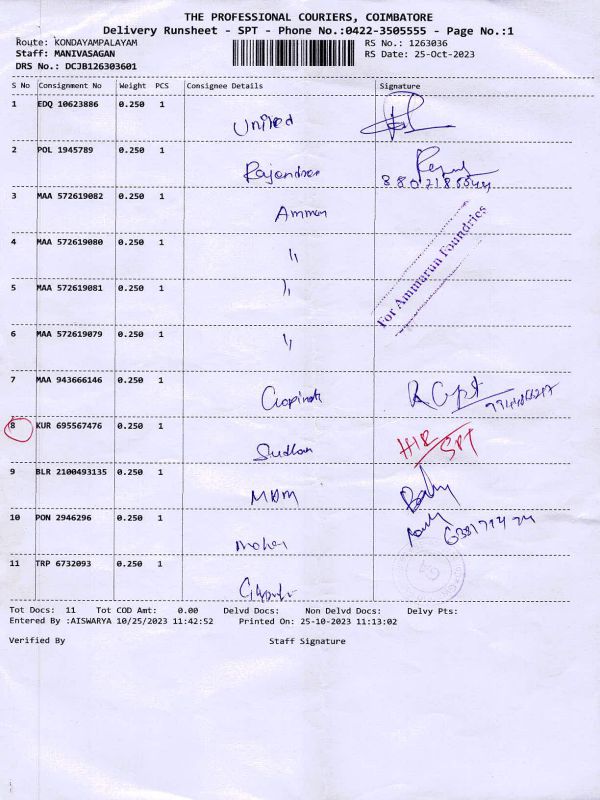 THE PROFESSIONAL COURIERS, COIMBATORE
Delivery Runsheet - SPT - Phone No.:0422-3505555 - Page No.:1
Route: KONDAYAMPALAYAM RS No.: 1263036
Staff: MANIVASAGAN RS Date: 25-Oct-2023
DRS No.: DCJB126303601
S No Consignment No Weight PCS Consignee Details Signature
1 EDQ 10623886 0.250 1
United
2 POL 1945789 0.250 1
Rajendran
3 MAA 572619082 0.250 1
Amman
4 MAA 572619080 0.250 1
〃
5 MAA 572619081 0.250 1
〃
6 MAA 572619079 0.250 1
〃
For Ammarun Foundries
7 MAA 943666146 0.250 1
Gopinath
8 KUR 695567476 0.250 1
Sudhan H18 SPT
9 BLR 2100493135 0.250 1
MDM Baby
10 PON 2946296 0.250 1
Mohan
11 TRP 6732093 0.250 1
Tot Docs: 11 Tot COD Amt: 0.00 Delvd Docs: Non Delvd Docs: Delvy Pts:
Entered By :AISWARYA 10/25/2023 11:42:52 Printed On: 25-10-2023 11:13:02
Verified By Staff Signature